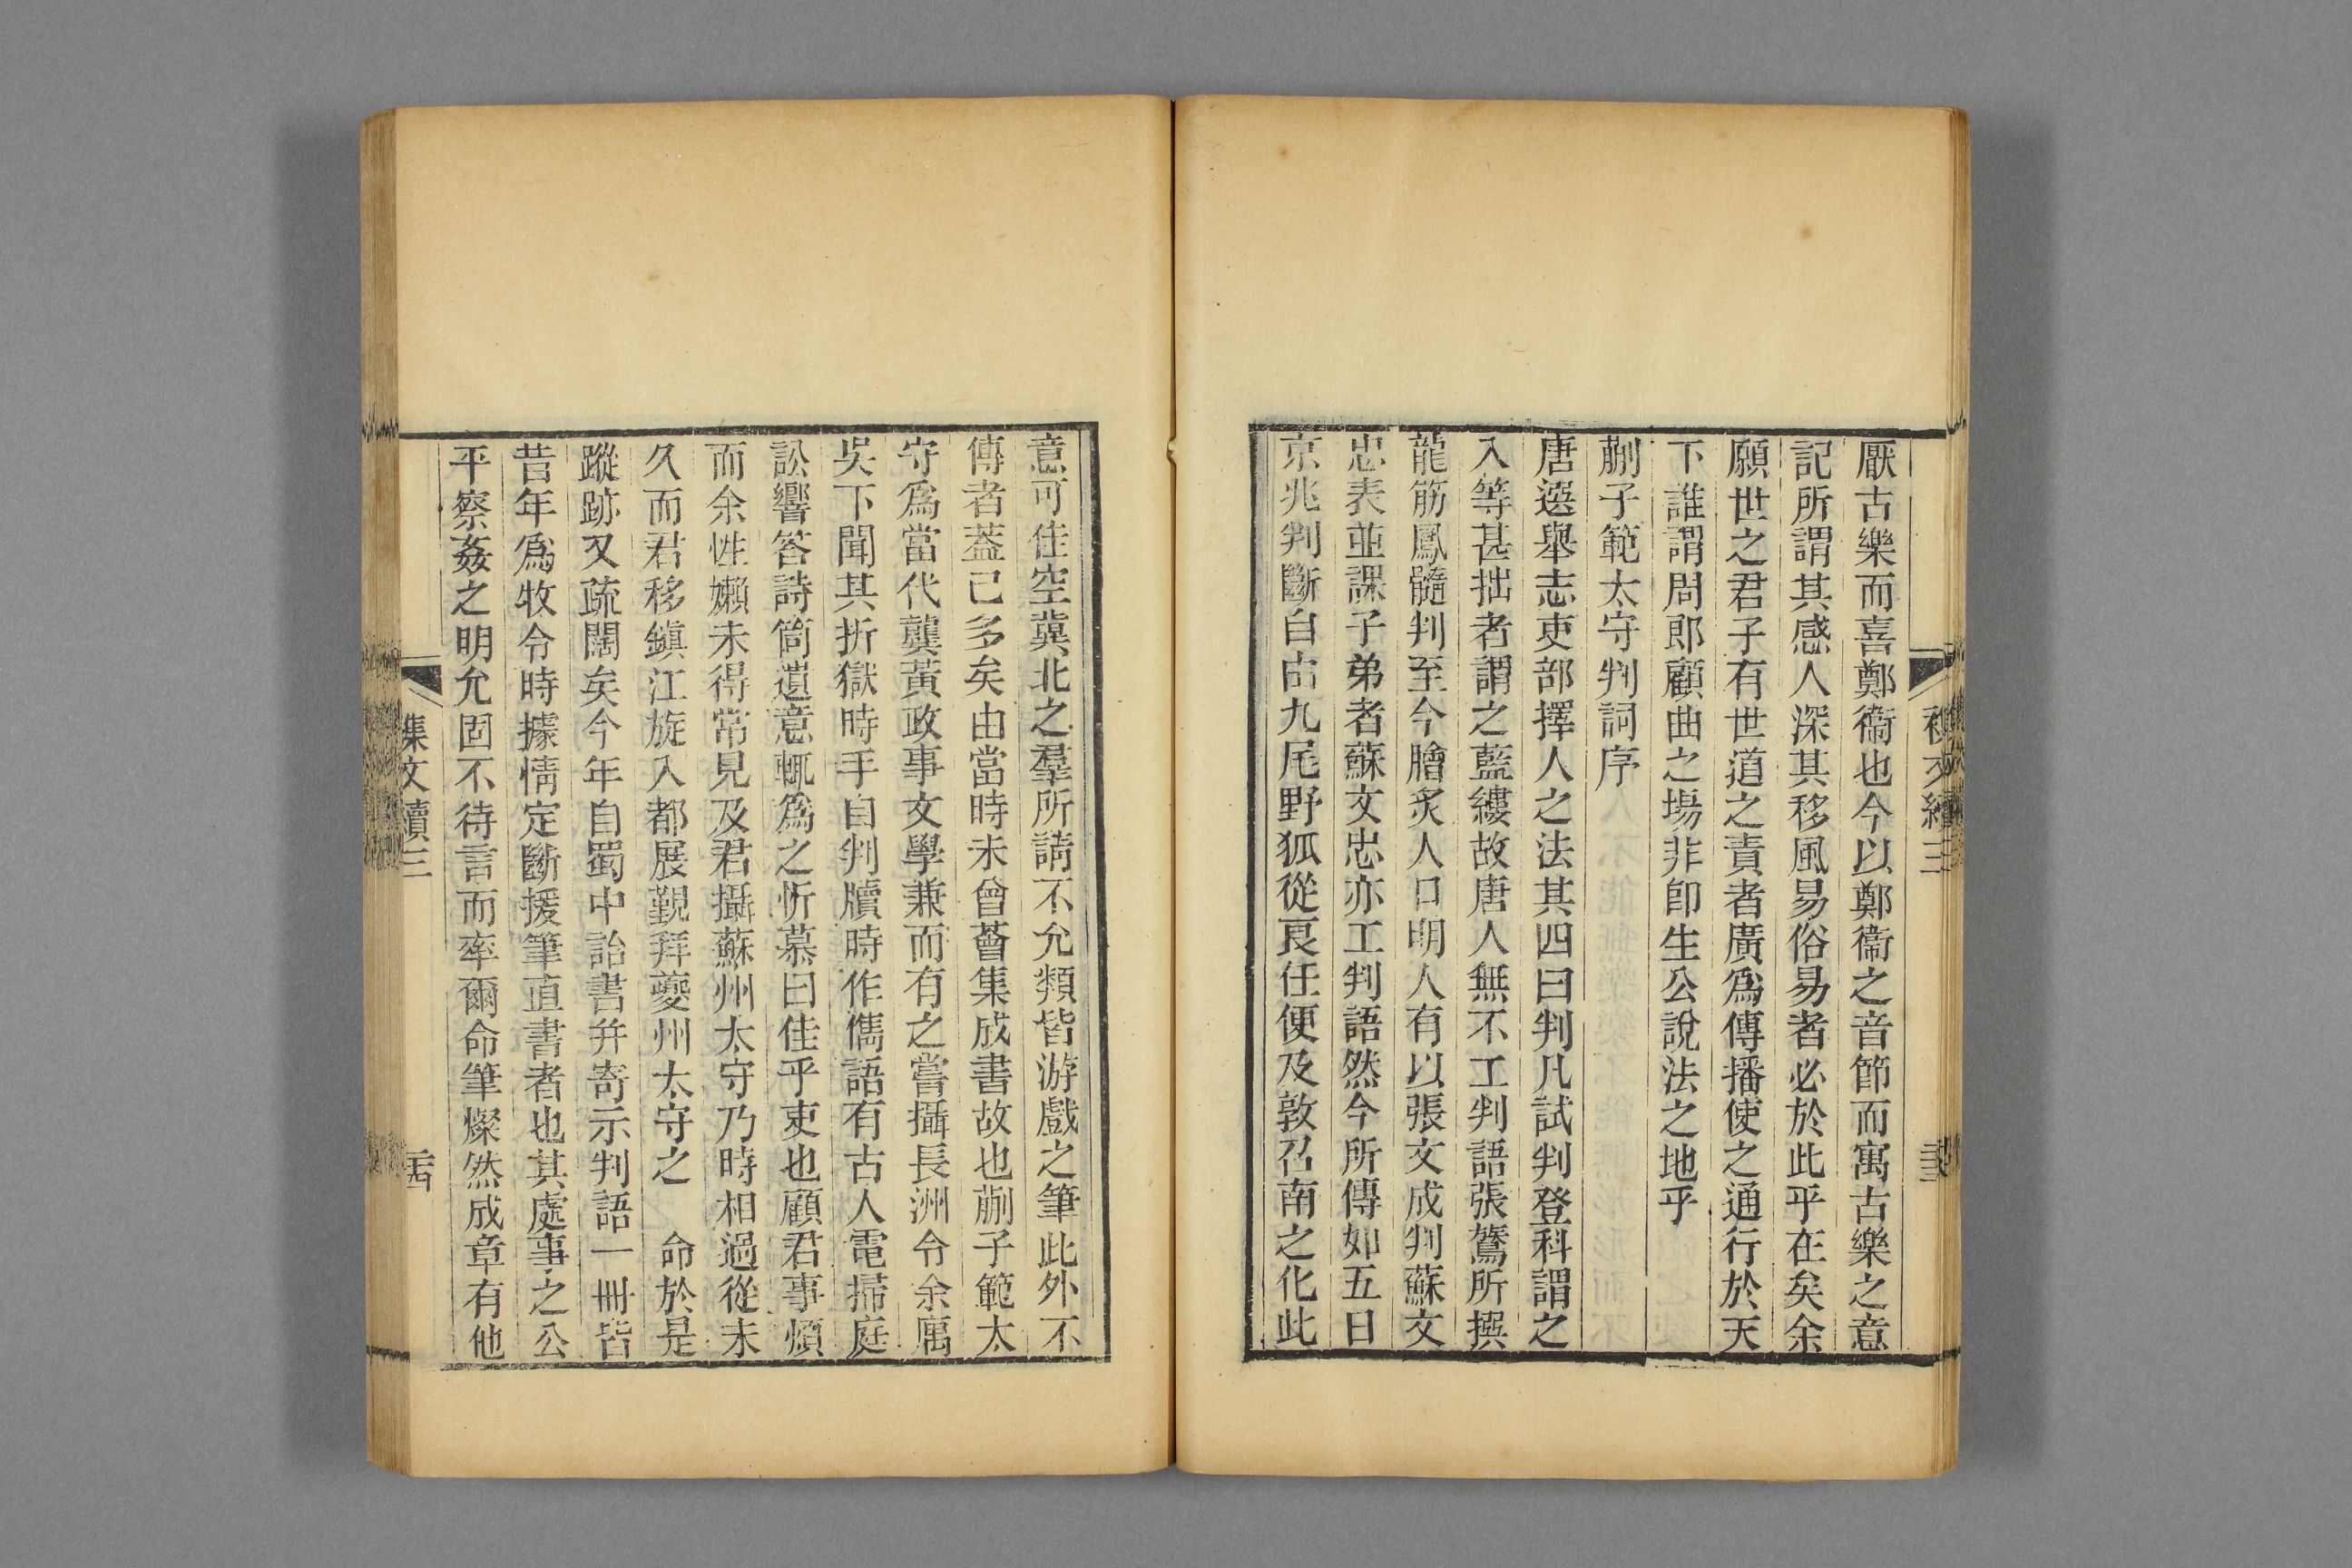 厭古樂而喜鄭衞也今以鄭衞之音節而寓古樂之意
記所謂其感人深其移風易俗易者必於此乎在矣余
願世之君子有世道之責者廣爲傳播使之通行於天
下誰謂問郎顧曲之場非卽生公說法之地乎
蒯子範太守判詞序
唐選舉志吏部擇人之法其四曰判凡試判登科謂之
入等甚拙者謂之藍縷故唐人無不工判語張鷟所撰
龍筋鳳髓判至今膾炙人口明人有以張文成判蘇文
忠表並課子弟者蘇文忠亦工判語然今所傳如五日
京兆判斷自由九尾野狐從良任便及敦召南之化此
意可佳空冀北之羣所請不允類皆游戲之筆此外不
傳者葢已多矣由當時未曾薈集成書故也蒯子範太
守爲當代龔黃政事文學兼而有之嘗攝長洲令余寓
吳下聞其折獄時手自判牘時作儁語有古人電掃庭
訟響答詩筒遺意輒爲之忻慕曰佳乎吏也顧君事煩
而余性嬾未得常見及君攝蘇州太守乃時相過從未
久而君移鎭江旋入都展覲拜夔州太守之　命於是
蹤跡又疏闊矣今年自蜀中詒書并寄示判語一冊皆
昔年爲牧令時據情定斷援筆直書者也其處事之公
平察姦之明允固不待言而率爾命筆燦然成章有他
集文續三